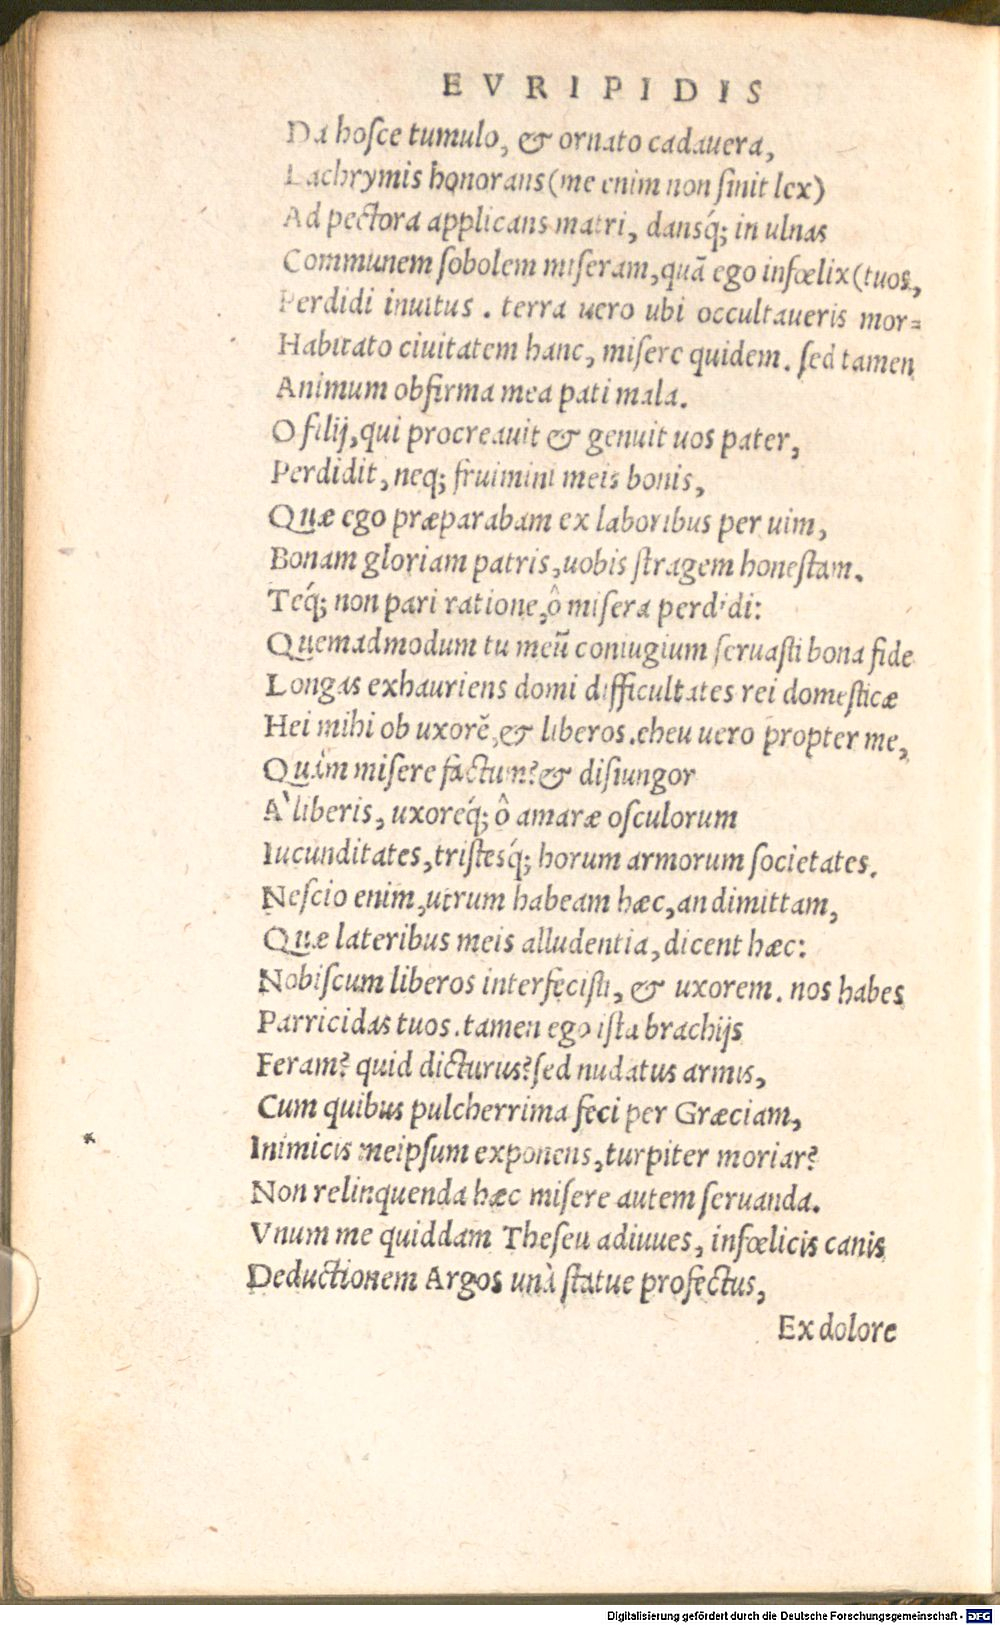 EVRIPIDIS
Da hosce tumulo, & ornato cadauera,
Lachrymis honorans (me enim non sinit lex)
Ad pectora applicans matri, dansq́; in ulnas
Communem sobolem miseram, quã ego infœlix (tuos,
Perdidi inuitus. terra uero ubi occultaueris mor=
Habitato ciuitatem hanc, misere quidem. sed tamen
Animum obfirma mea pati mala.
O filij, qui procreauit & genuit uos pater,
Perdidit, neq; fruimini meis bonis,
Quæ ego præparabam ex laboribus per uim,
Bonam gloriam patris, uobis stragem honestam.
Teq́; non pari ratione, ô misera perdidi:
Quemadmodum tu meũ coniugium seruasti bona fide
Longas exhauriens domi difficultates rei domesticæ
Hei mihi ob uxorẽ, & liberos. eheu uero propter me,
Quàm misere factum? & disiungor
A` liberis, uxoreq́; ô amaræ osculorum
Iucunditates, tristesq́; horum armorum societates.
Nescio enim, utrum habeam hæc, an dimittam,
Quæ lateribus meis alludentia, dicent hæc:
Nobiscum liberos interfecisti, & uxorem. nos habes
Parricidas tuos. tamen ego ista brachijs
Feram? quid dicturus? sed nudatus armis,
Cum quibus pulcherrima feci per Græciam,
Inimicis meipsum exponens, turpiter moriar?
Non relinquenda hæc misere autem seruanda.
Vnum me quiddam Theseu adiuues, infœlicis canis
Deductionem Argos unà statue profectus,
Ex dolore
Digitalisierung gefördert durch die Deutsche Forschungsgemeinschaft - DFG